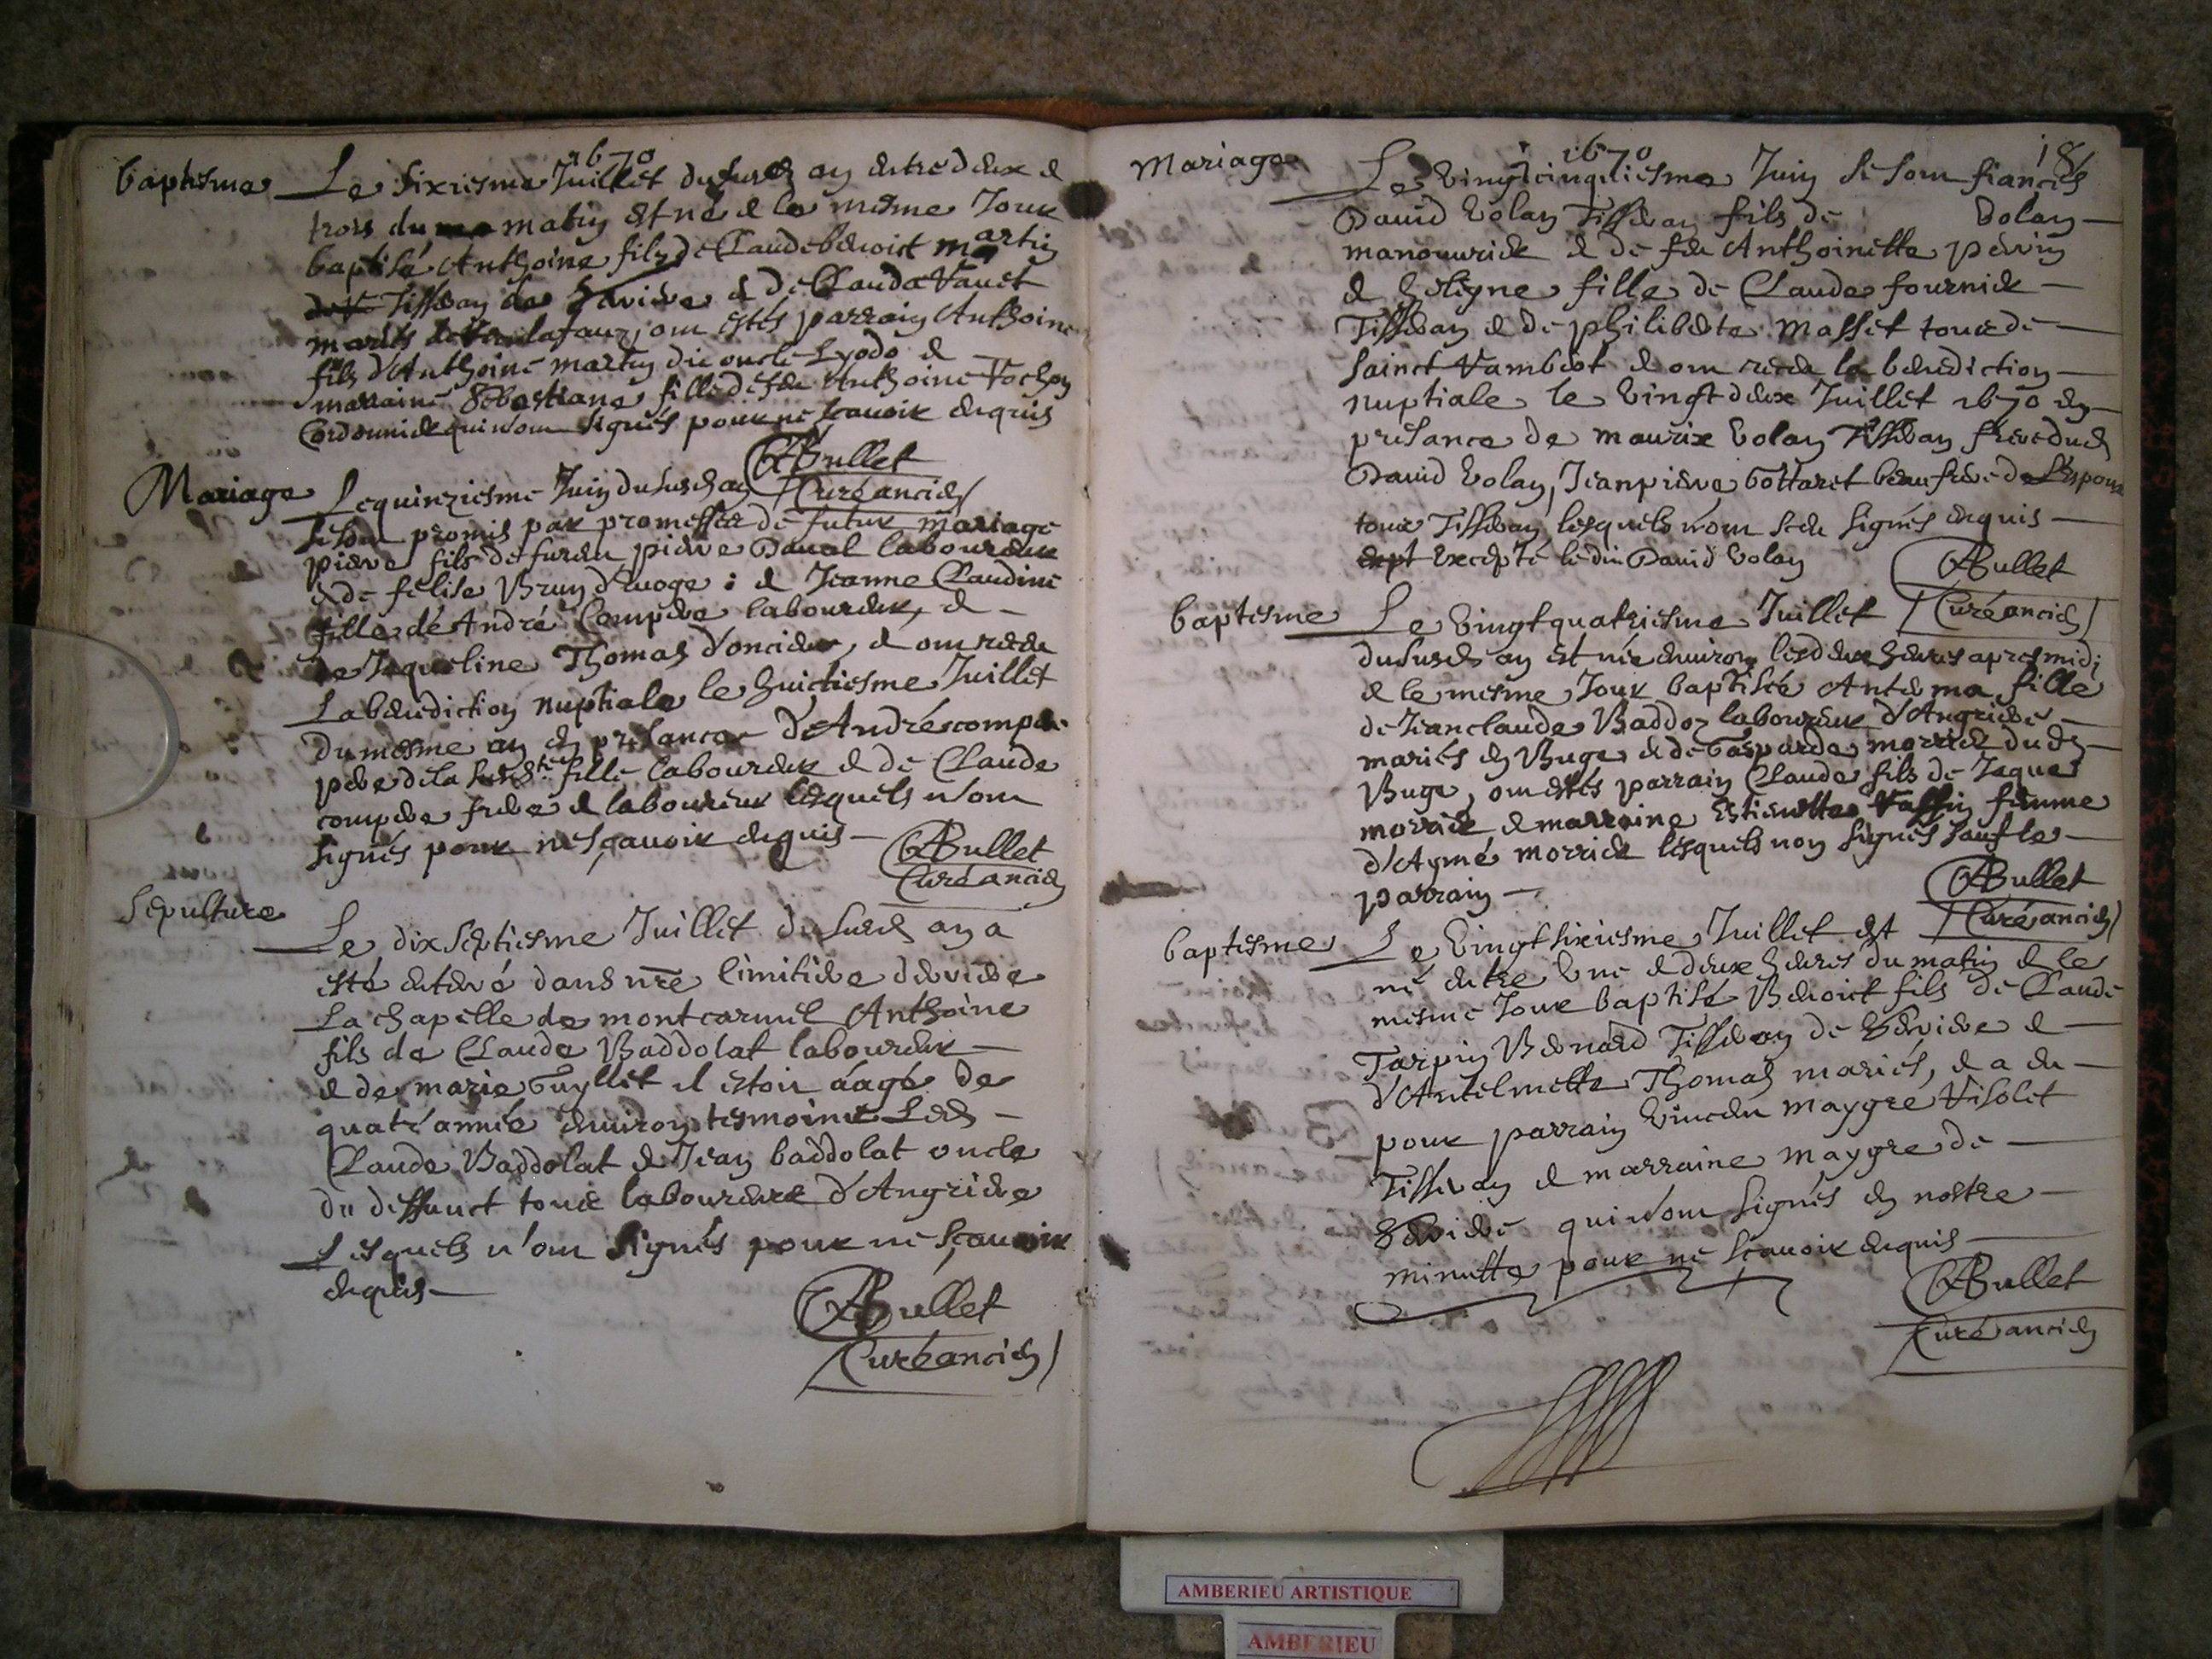 1670
baptisme Le sixiesme Juillet dususd an entre deux et
trois du matin est né et le mesme Jour
baptisé Anthoine filz de Claude benoict martin
Tisseran de et de Clauda Vauet
mariés om estés parrain Anthoine
fils d'Anthoine martin dit oncle Lyodo et
marraine Sébastiane fille de feu Anthoine Vochon
Cordonnier qui n'om signés pour ne scauoir enquis
ABullet
Curé ancien
Mariage Le quinziesme Juin du susd an
se som promis par promesses de futur mariage
pierre fils de fureu pierre Daual laboureur
et de felise Brun d'Euoge : et Jeanne Claudine
fille de André Compere laboureur, et
de Jaqueline Thomas d'oncieu, et om receu
La benediction nuptiale le huictiesme Juillet
du mesme an en presance d'André compere
pere de la susd.te fille laboureur et de Claude
compere frere et laboureur lesquels n'om
signés pour ne sçauoir enquis
ABullet
Curé ancien
Sepulture Le dixseptiesme Juillet du susd an a
esté enterré dans nre simitiere derriere
La chapelle de montcarmel Anthoine
fils de Claude Baddolat laboureur
et de marie Guyllet il estoit aagé de
quatre année enuiron tesmoins Led
Claude Baddolat et Jean baddolat oncle
du deffunct tous laboureurs d'Angriere
Lesquels n'om signés pour ne scauoir
enquis
ABullet
Curé ancien
1670
18
Mariage Le Vingtcinquiesme Juin se som fiancés
Dauid Volan Tisseran fils de Volan
manouurier et de feu Anthoinette perrin
et heligne fille de Claude fournier
Tisseran et de philiberte Masset tous de
sainct Rambert et om receu la benediction
nuptiale le Vingtdeux Juillet 1670 en
presance de maurix Volan Tisseran frere dud
Dauid Volan, Jeanpierre Gottaret beaufrere de l'espouse
tous Tisseran lesquels n'om sceu signés enquis
excepté ledit Dauid Volan
ABullet
Curé ancien
baptesme Le Vingtquatriesme Juillet
dusused an est née enuiron les deux heures apres midi
et le mesme Jour baptisée Antelma fille
de Jeanclaude Baddoz laboureur d'Angriere
mariés en Buge et de Gasparde morrier dud
Buge, om estés parrain Claude fils de Jaque
morrier et marraine Estienette Vassin femme
d'Aymé morrier lesquels non signés sauf le
parrain
ABullet
Curé ancien
baptesme Le Vingt sixiesme Juillet est
né entre Vne et deux heures du matin et le
mesme Jour baptisé Benoict fils de Claude
Tarpin Bernard Tisseran de Serriere et
d'Antelmette Thomas mariés, et a eu
pour parrain Vincen maygre Visolet
Tisseran et marraine maygre de
Serriere qui n'om signés en nostre
minutte pour ne scauoir enquis
ABullet
Curé ancien
AMBERIEU ARTISTIQUE
AMBERIEU